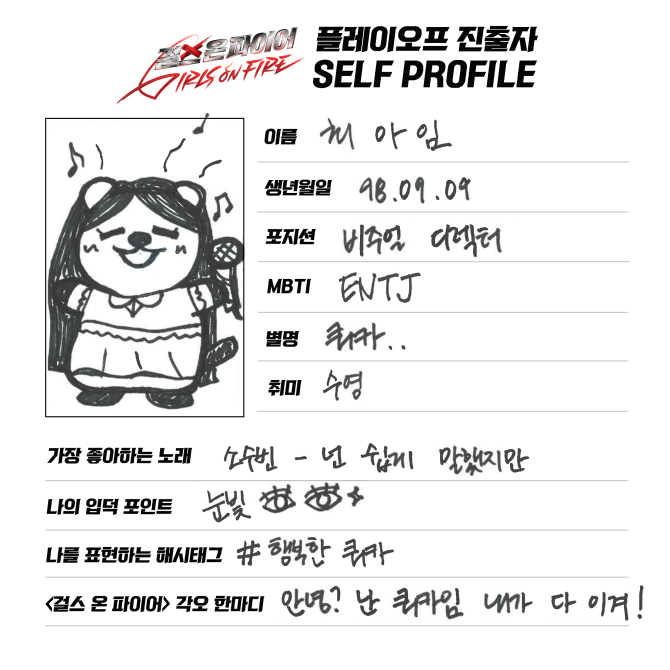 걸스 온 파이어
GIRLS ON FIRE
플레이오프 진출자
SELF PROFILE
이름 최 아 임
생년월일 98.09.09
포지션 비주얼 디렉터
MBTI ENTJ
별명 쿼카..
취미 수영
가장 좋아하는 노래 소수빈 - 넌 쉽게 말했지만
나의 입덕 포인트 눈빛
나를 표현하는 해시태그 # 행복한 쿼카
<걸스 온 파이어> 각오 한마디 안녕? 난 쿼카임 내가 다 이겨!